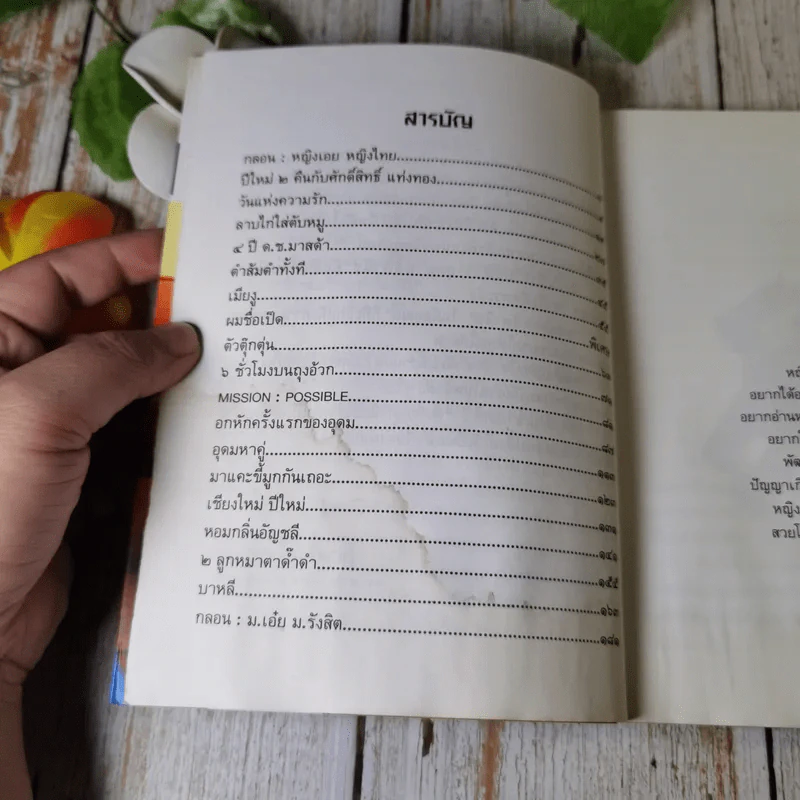 สารบัญ
กลอน : หญิงเอย หญิงไทย
ปีใหม่ ๒ คืนกับศักดิ์สิทธิ์ แท่งทอง
วันแห่งความรัก
ลาบไก่ใส่ตับหมู
๔ ปี ด.ช.มาสด้า
ตำส้มตำทั้งที
เมียงู
ผมชื่อเป็ด
ตัวตุ๊กตุ่น
๖ ชั่วโมงบนถุงอ้วก
MISSION : POSSIBLE ๗๑
อกหักครั้งแรกของอุดม ๘๑
อุดมหาคู่ ๘๗
มาแคะขี้มูกกันเถอะ ๑๑๓
เชียงใหม่ ปีใหม่ ๑๒๓
หอมกลิ่นอัญชลี ๑๓๑
๒ ลูกหมาตาดำๆดำ ๑๔๑
บาหลี ๑๕๕
กลอน : ม.เอ๋ย ม.รังสิต ๑๖๓
๑๘๑
อยากได้
ปัญญา
หญิง